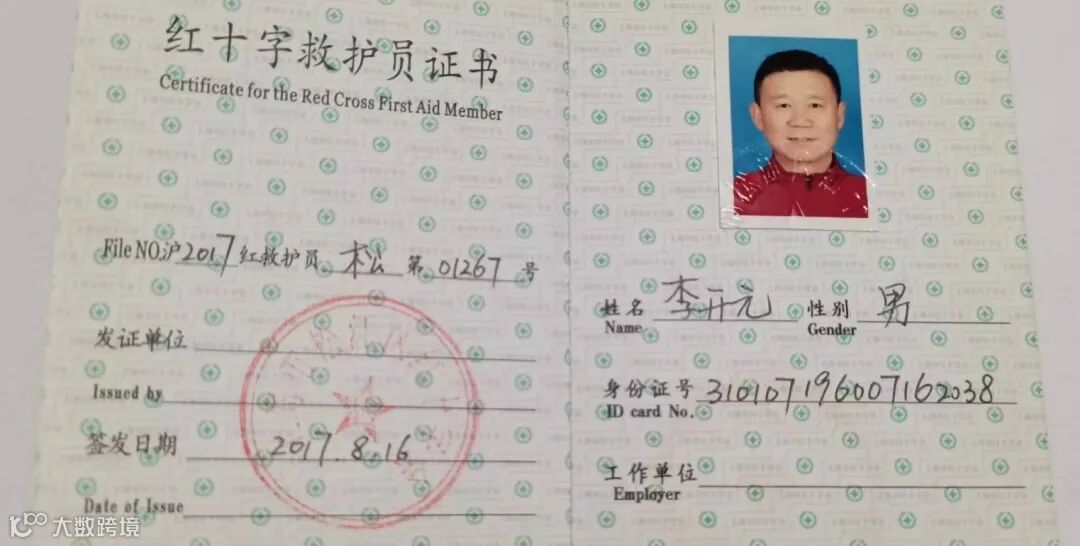 红十字救护员证书
Certificate for the Red Cross First Aid Member
File NO.沪2017红救护员 松 第 01267 号
发证单位
Issued by
签发日期 2017.8.16
Date of Issue
姓名 李开元 性别 男
Name Gender
身份证号 310107196007162038
ID card No.
工作单位
Employer
大数跨境